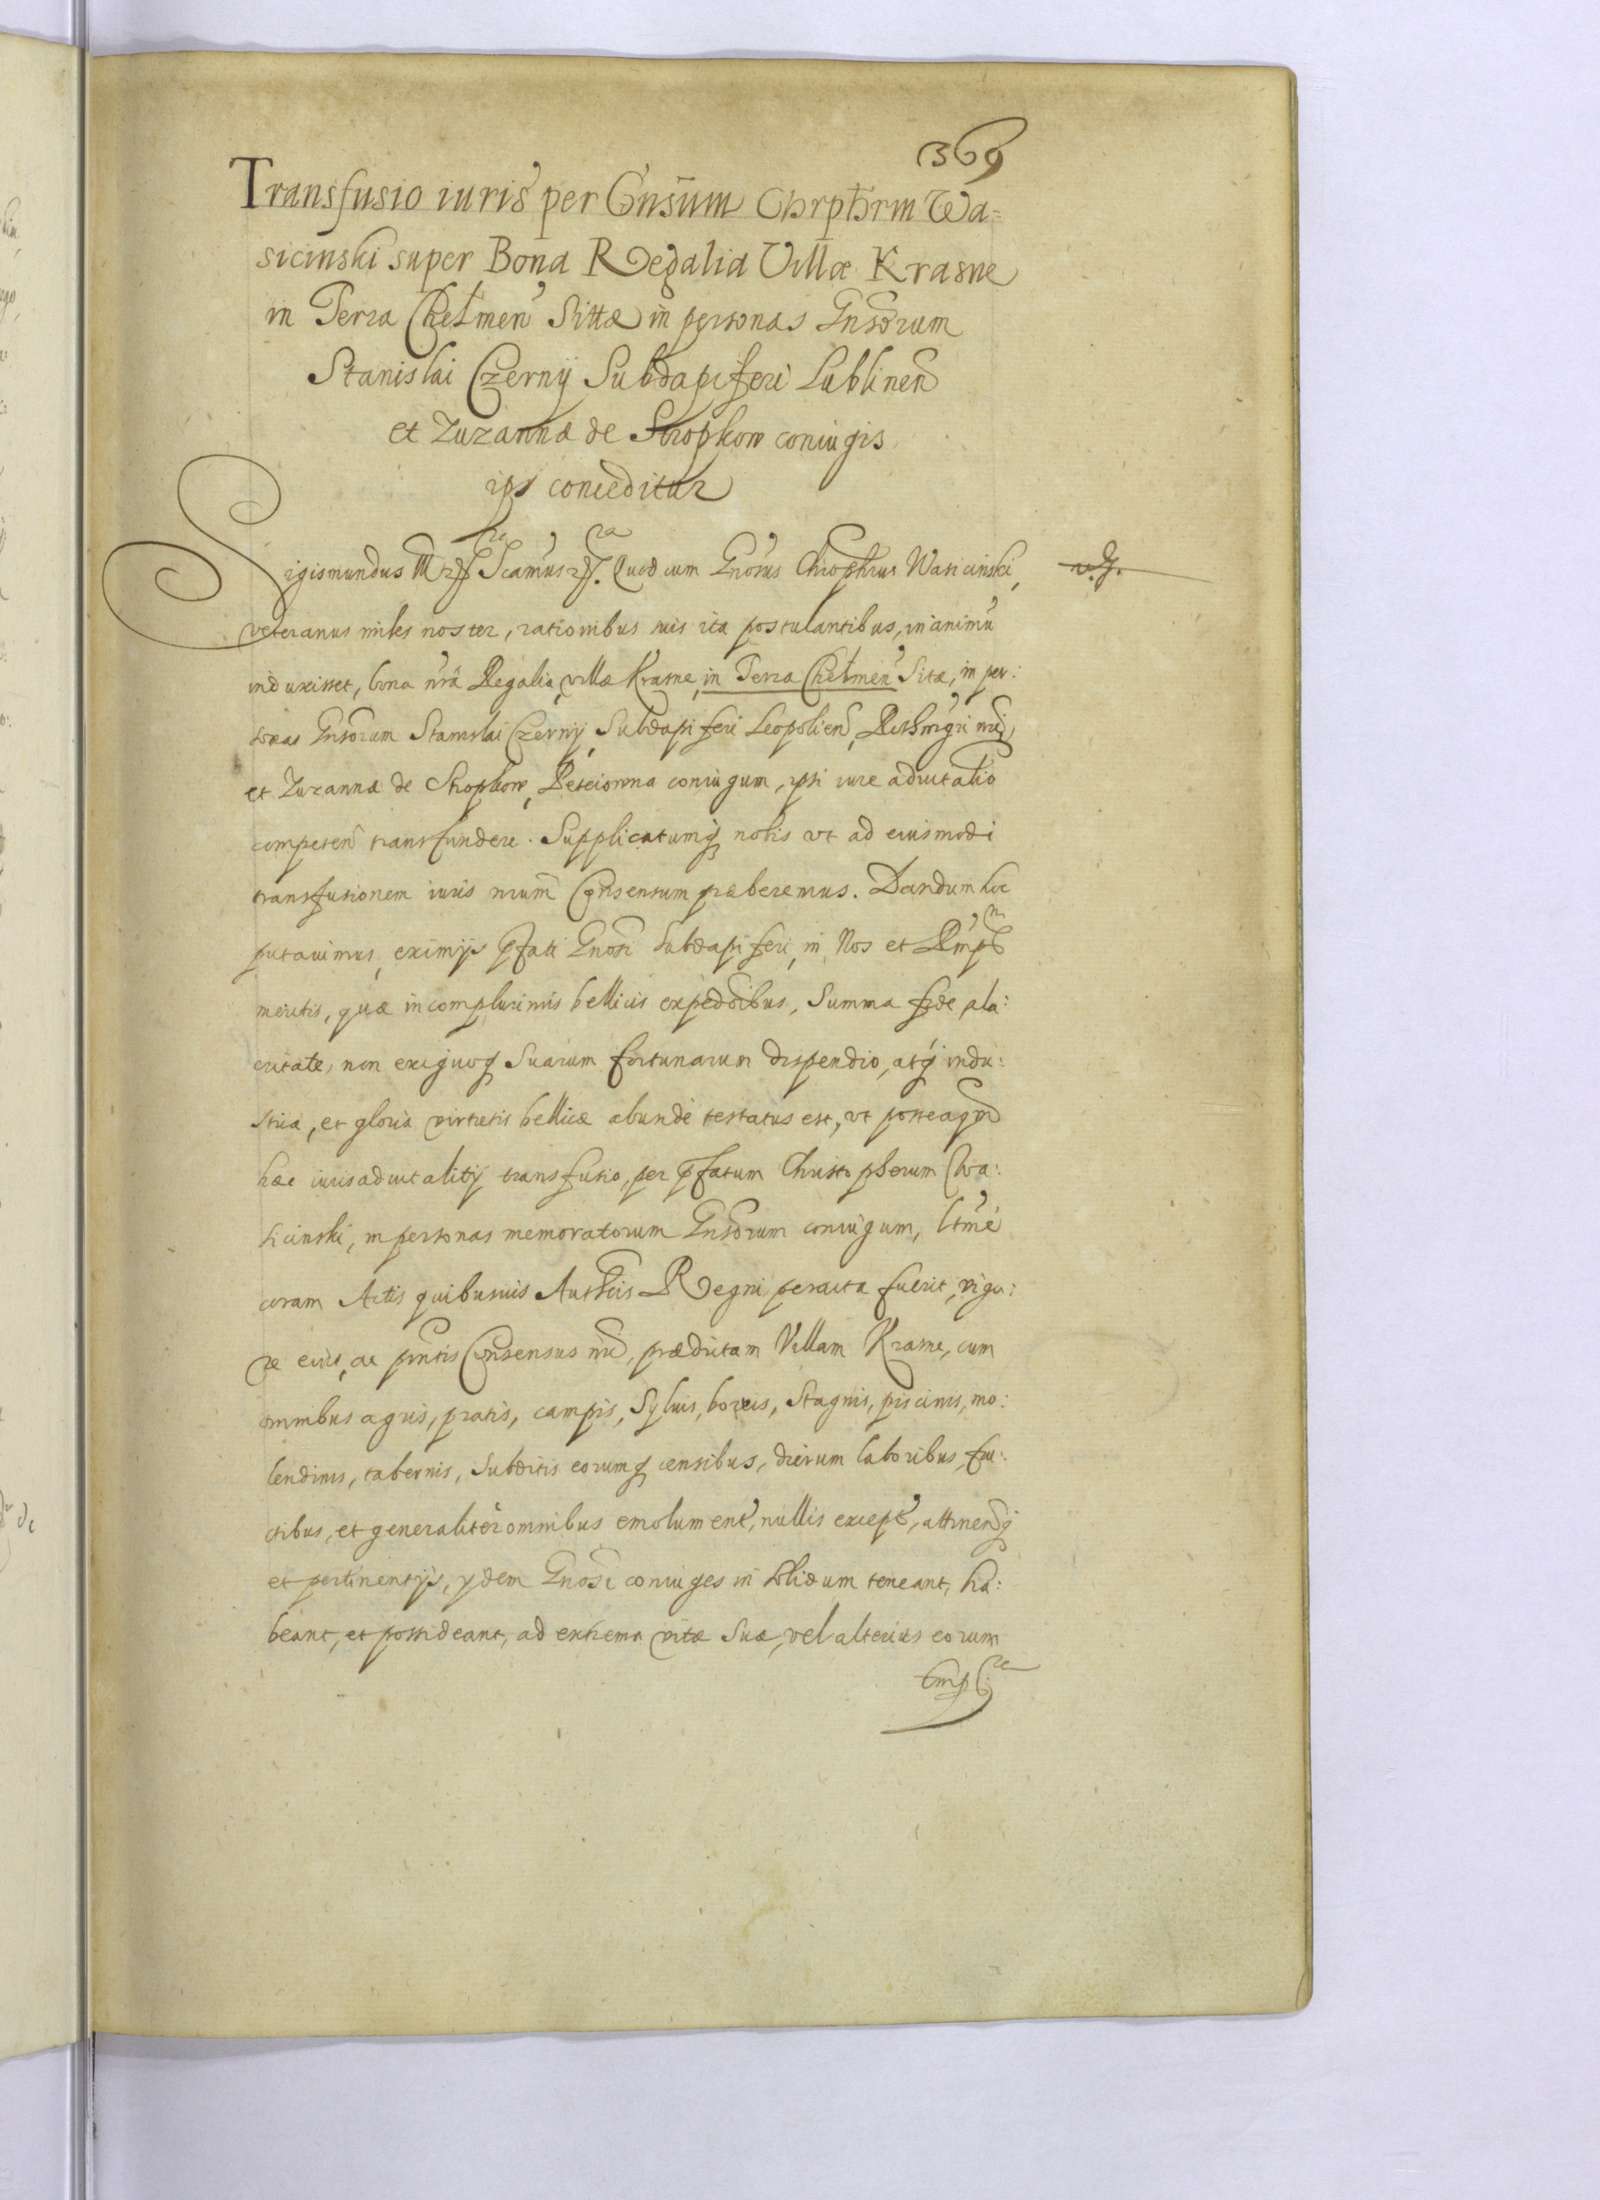 369
Transfusio iuris per Gnsum Chrphrm Wa=
sicinski super Bona Regalia Villæ Krasne
in Terra Chełmen Sittæ in personas Gnsorum
Stanislai Czerny Subdapiferi Lublinen
et Zuzannæ de Stropkow coniugis
ips conceditur
Sigismundus III Quod cum Gnosus Chrophrus Wasicinski,
veteranus miles noster, rationibus suis ita postulantibus, in animu
induxisset, bona nra Regalia villæ Krasne in Terra Chełmen Sitæ, in per:
sonas Gnsorum Stanislai Czerny, Subdapiferi Leopolien, nri,
et Zuzannæ de Stropkow, coniugum, ipsi iure aduitalio
competen transfundere. Supplicatumq nobis vt ad eiusmodi
transfusionem iuris nrum Consensum præberemus. Dandum hoc
putauimus, eximijs pfati Gnosi Subdapiferi, in Nos et Rmpb
meritis, quæ in complurimis bellicis expedoibus, Summa fide, ala:
critate, non exiguoq Suarum fortunarum dispendio, atq indu:
stria, et gloria virtutis bellicæ abundè testatus est, vt posteaqm
hæc iuris aduitalitij transfusio, per pfatum Christopherum Wa:
sicinski, in personas memoratorum Gnsorum coniugum, ltme
coram Actis quibusuis Authcis Regni peracta fuerit, vigo:
re eius, ac pntis Consensus nri, prædictam Villam Krasne, cum
omnibus agris, pratis, campis, Syluis, boreis, Stagnis, piscinis, mo:
lendinis, tabernis, Subditis eorumq censibus, dierum laboribus, fru:
ctibus, et generalitèr omnibus emolument, nullis except, attinenq
et pertinentijs, ydem Gnosi coniuges in solidum teneant, ha:
beant, et possideant, ad extrema vitæ Suæ, vel alterius eorum